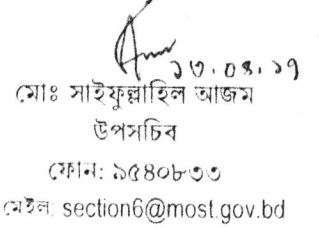 ১৩.০৪.১৭
মোঃ সাইফুল্লাহিল আজম
উপসচিব
ফোন: ৯৫৪০৮৩৩
মেইল: section6@most.gov.bd